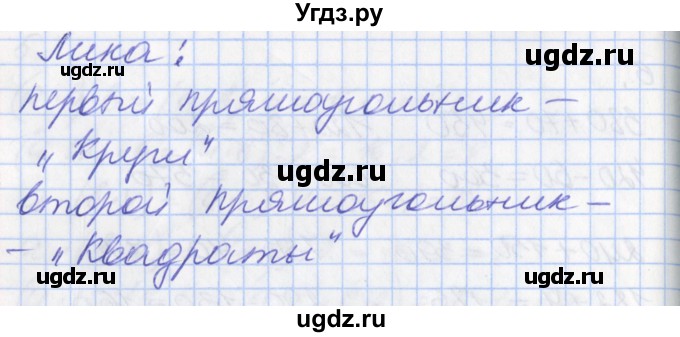 Угдз.ру
Лика:
первый прямоугольник –
„Круги"
второй прямоугольник –
– „Квадраты"
ugdz.ru ugdz.ru ugdz.ru
ugdz.ru
ugdz.ru ugdz.ru
ugdz.ru
ugdz.ru